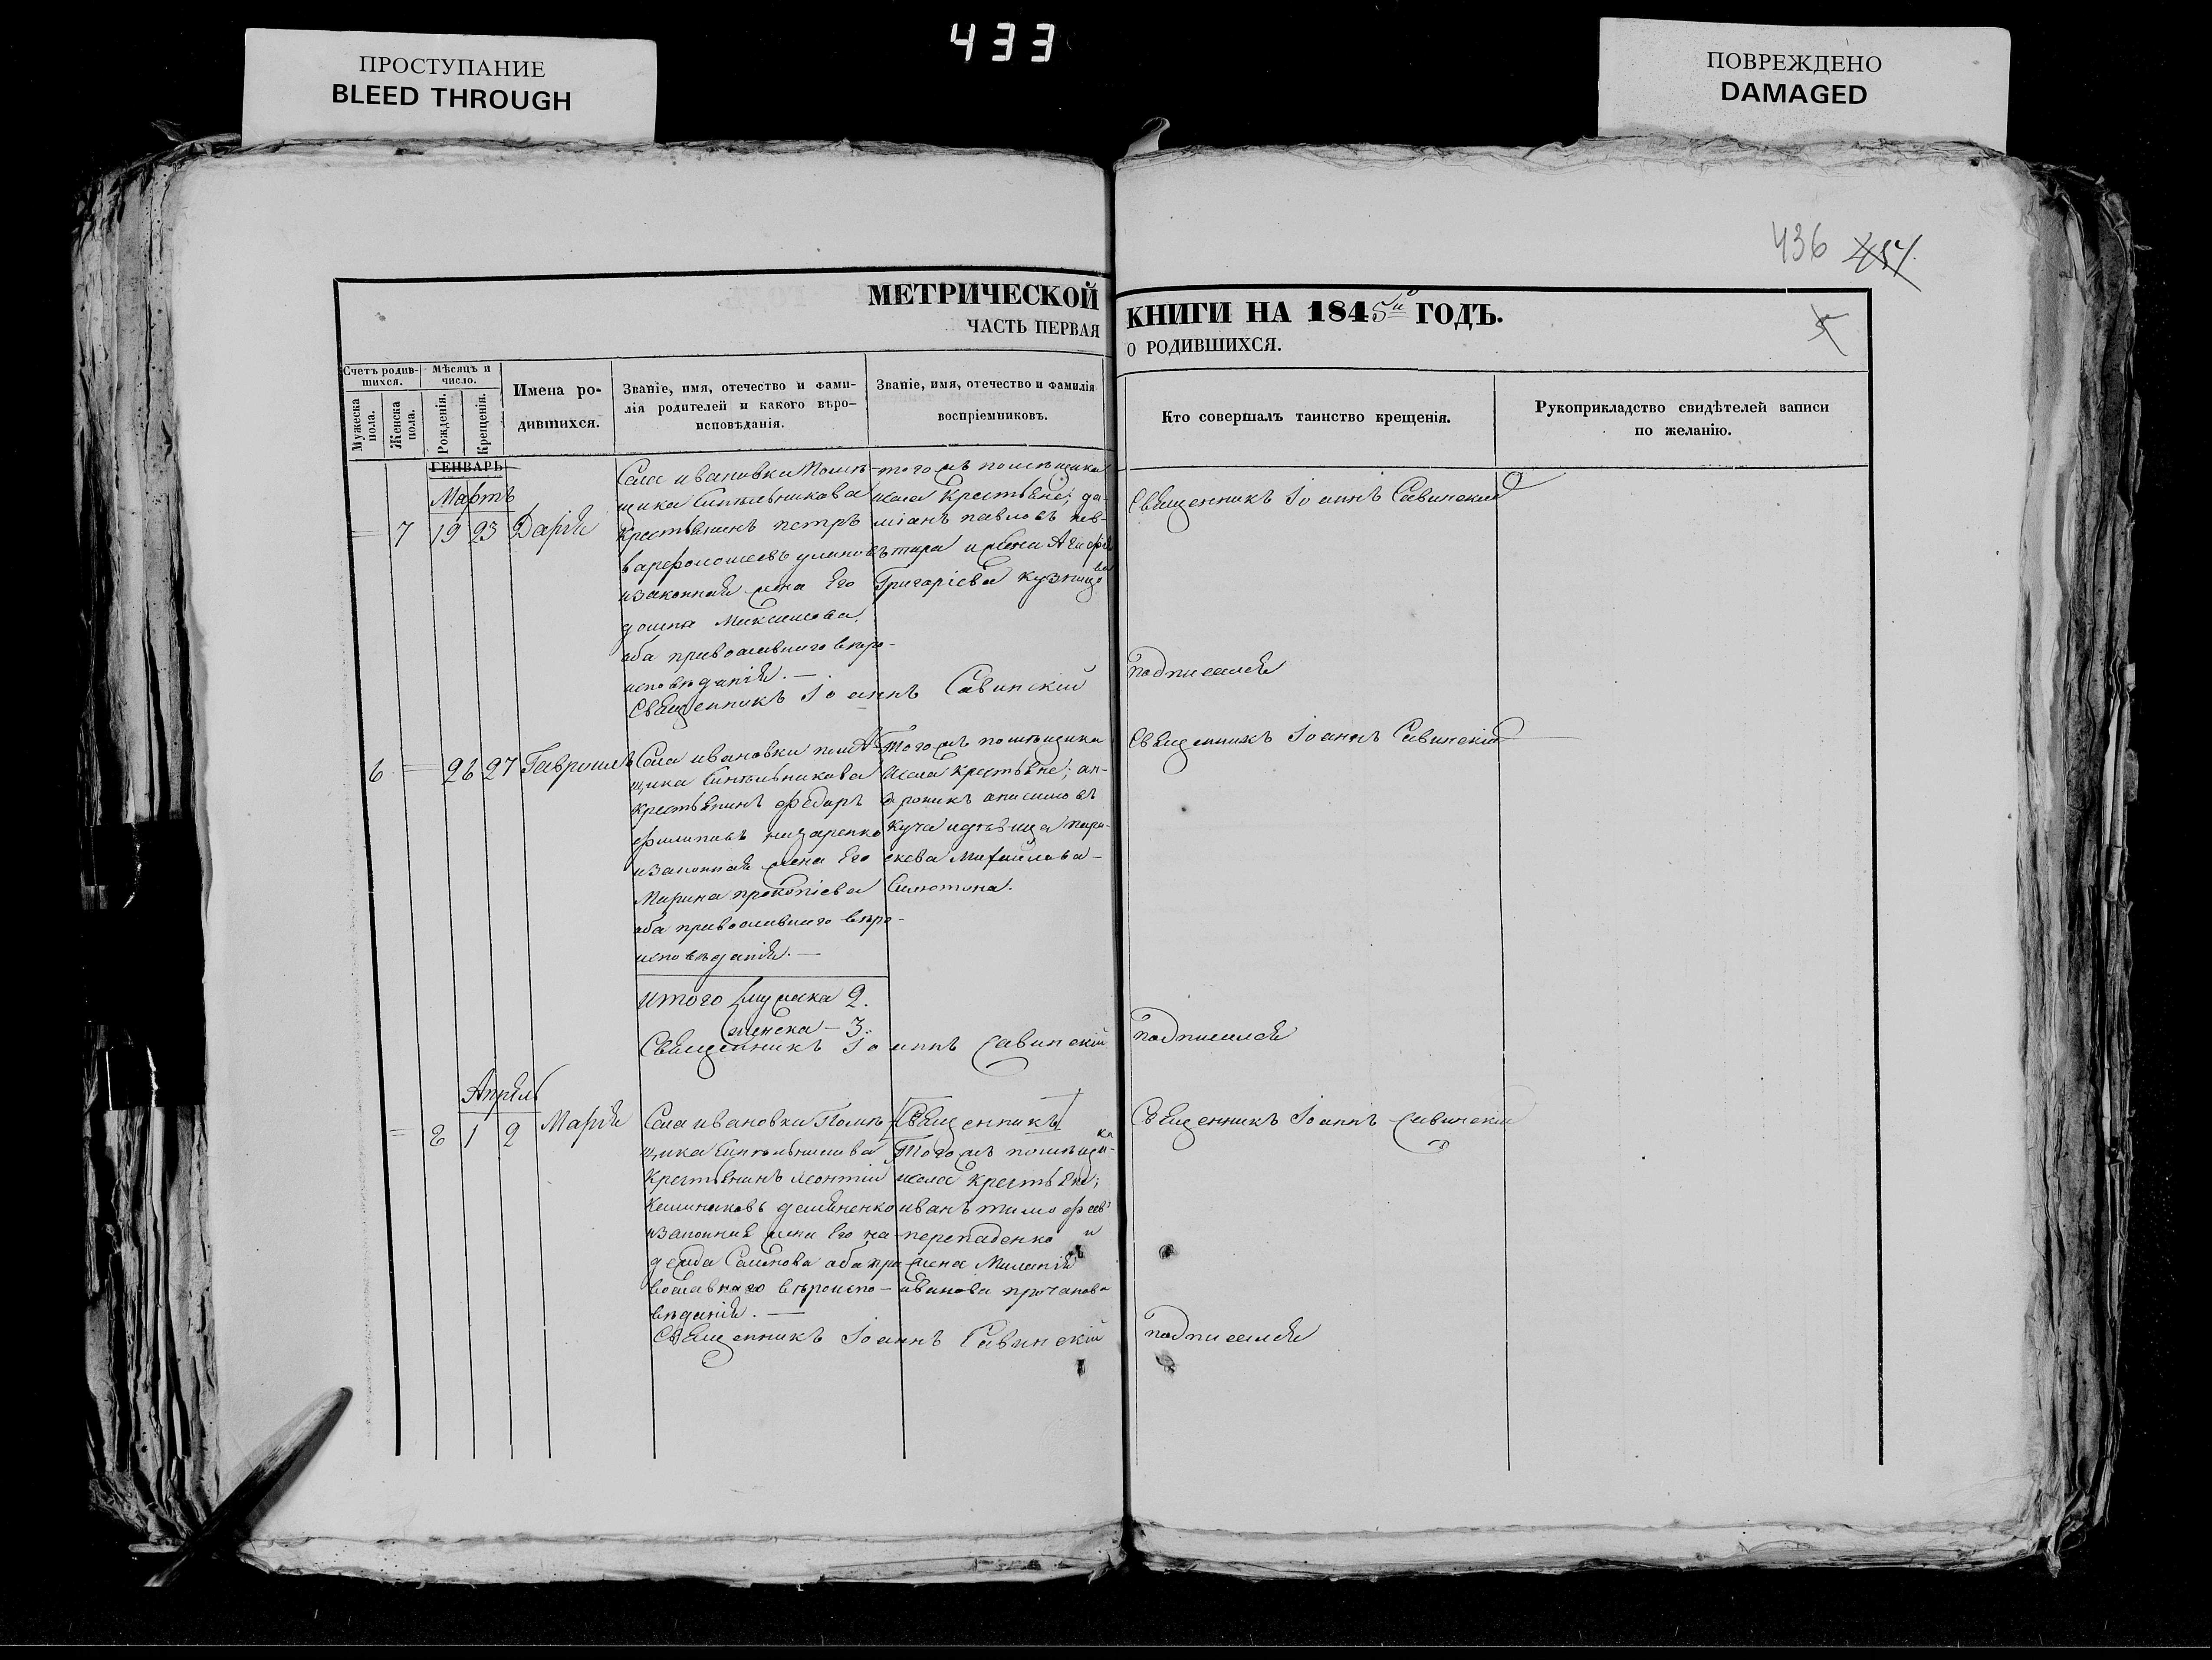 433
ПРОСТУПАНИЕ
BLEED THROUGH
ПОВРЕЖДЕНО
DAMAGED
436
МЕТРИЧЕСКОЙ КНИГИ НА 1845й ГОДЪ.
ЧАСТЬ ПЕРВАЯ О РОДИВШИХСЯ.
Счетъ родив-
шихся.
Мужеска пола.
Женска пола.
Мѣсяцъ и
число.
Рожденія.
Крещенія.
Имена ро-
дившихся.
Званіе, имя, отечество и фами-
лія родителей и какого вѣро-
исповѣданія.
Званіе, имя, отечество и фамилія
воспріемниковъ.
Кто совершалъ таинство крещенія.
Рукоприкладство свидѣтелей записи
по желанію.
ГЕНВАРЬ
Мартъ
7 19 23 Дарія
Села ивановки Помѣ-
щика Синельникова
крестьянинъ петръ
варфоломеевъ
изаконная жена Его
домна Максимова,
оба православнаго вѣро-
исповѣданія. —
того жъ помѣщика
села крестьяне; да-
міанъ павловъ
и жена Агафія
Григоріева
Священникъ Іоаннъ Савинскій
Священникъ Іоаннъ Савинскій подписался
6 = 26 27 Гавріилъ
Села ивановки помѣ-
щика Синельникова
крестьянинъ федоръ
филиповъ назаренко
изаконная жена Его
Марина прокопіева
оба православнаго вѣро-
исповѣданія. —
Того жъ помѣщика
села крестьяне; ан-
дроникъ анисимовъ
Куча идѣвица пара-
скева Михайлова
Священникъ Іоаннъ Савинскій
итого мужеска 2.
женска — 3.
Священникъ Іоаннъ Савинскій подписался
Апрѣль
= 8 1 2 Марія
Села ивановки Помѣ-
щика Синельникова
крестьянинъ леонтій
демяненко
изаконная жена Его на-
дежда Семенова оба пра-
вославнаго вѣроиспо-
вѣданія. —
Священникъ
Того жъ помѣщика
села крестьяне;
иванъ тимофеевъ
перепаденко и
жена Миланія
иванова
Священникъ Іоаннъ Савинскій
Священникъ Іоаннъ Савинскій подписался